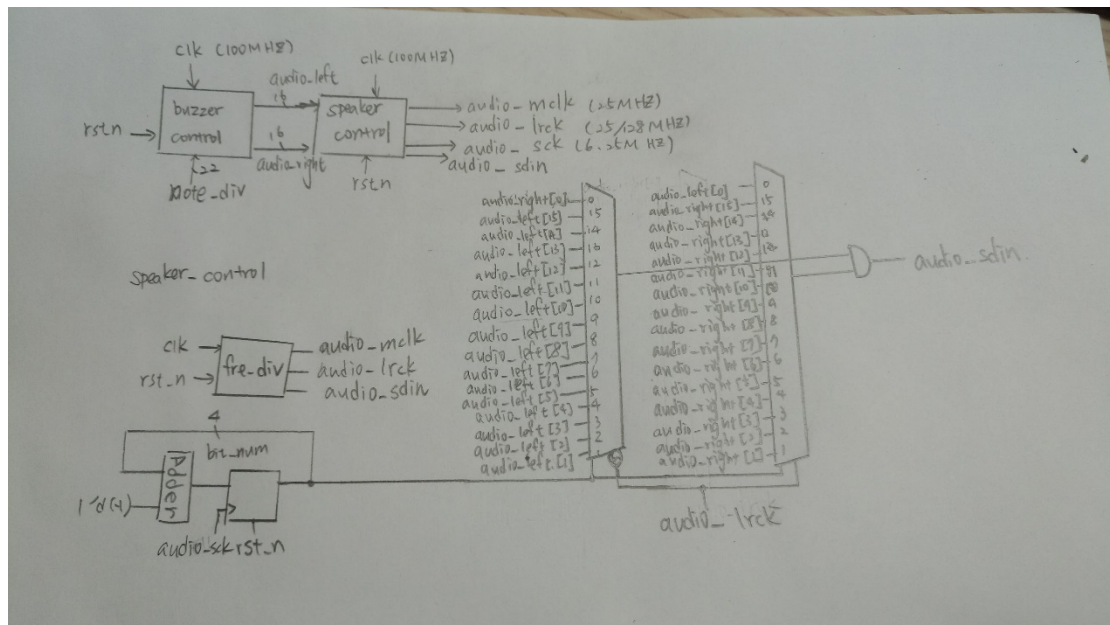 clk (100MHZ)
clk (100MHZ)
audio_left
16
buzzer control
speaker control
rstn
16
audio_right
22
note_div
rstn
audio_mclk (25MHZ)
audio_lrck (25/128MHZ)
audio_sck (6.25MHZ)
audio_sdin
speaker_control
clk
rst_n
fre_div
audio_mclk
audio_lrck
audio_sdin
4
bit_num
Adder
audio_sck
rst_n
audio_right[0] 0
audio_left[15] 15
14
audio_left[13]
audio_left[12] 12
audio_left[11] 11
audio_left[10] 10
audio_left[9] 9
audio_left[8] 8
audio_left[7] 7
audio_left[6] 6
audio_left[5] 5
audio_left[4] 4
audio_left[3] 3
audio_left[2] 2
audio_left[1]
audio_left[0] 0
audio_right[15] 15
audio_right[14]
audio_right[13]
audio_right[12]
audio_right[11]
audio_right[10]
audio_right[9]
audio_right[8] 8
audio_right[7] 7
audio_right[6] 6
audio_right[5] 5
audio_right[4] 4
audio_right[3] 3
audio_right[2] 2
audio_right[1] 1
audio_sdin
audio_lrck